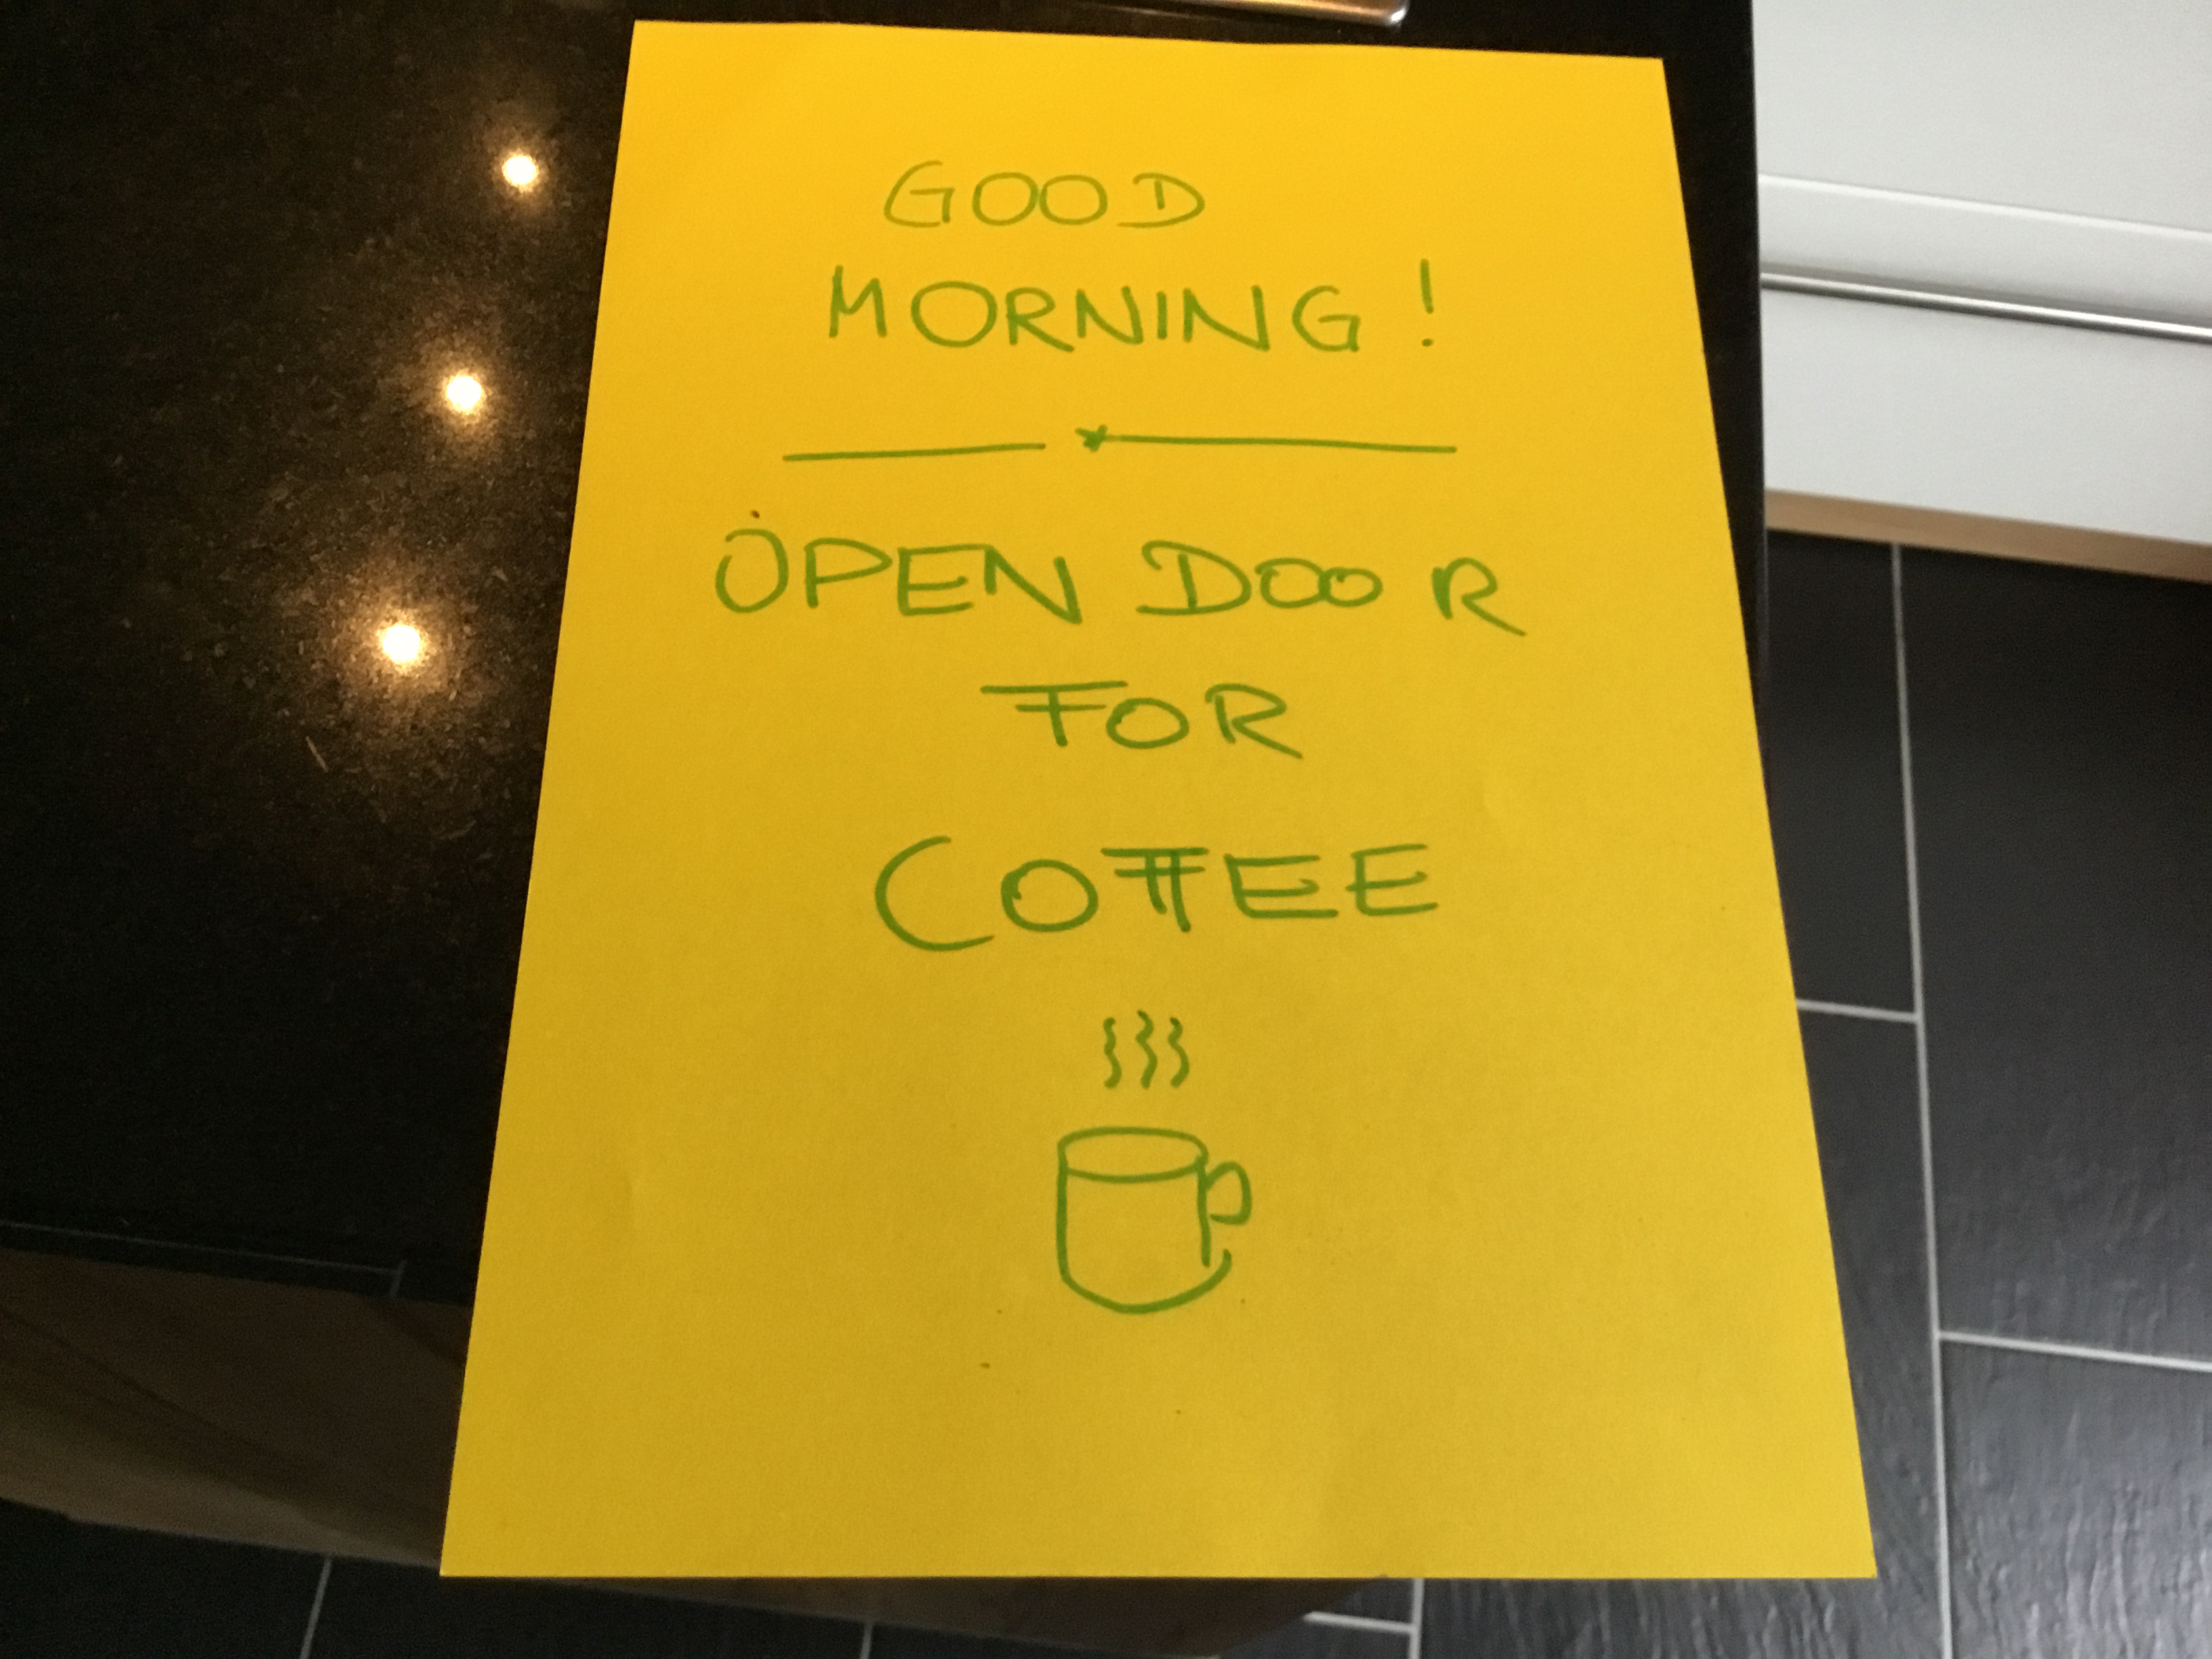 GOOD
MORNING!
OPEN DOOR
FOR
COFFEE